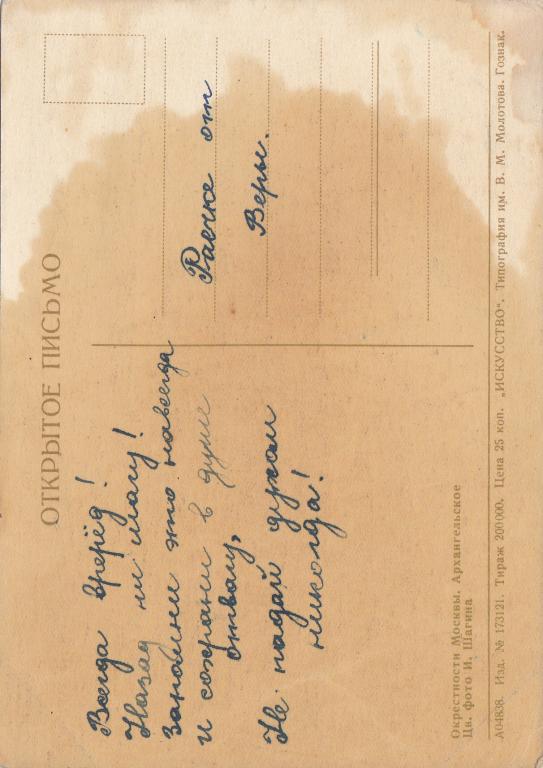 ОТКРЫТОЕ ПИСЬМО
Всегда вперёд!
Назад ни шагу!
Запомни это навсегда
и сохрани в душе
отвагу,
Не падай духом
никогда!
Раечке от
Веры.
Окрестности Москвы. Архангельское
Цв. фото И. Шагина
А04838. Изд. № 173121. Тираж 200000. Цена 25 коп. „ИСКУССТВО". Типография им. В. М. Молотова. Гознак.